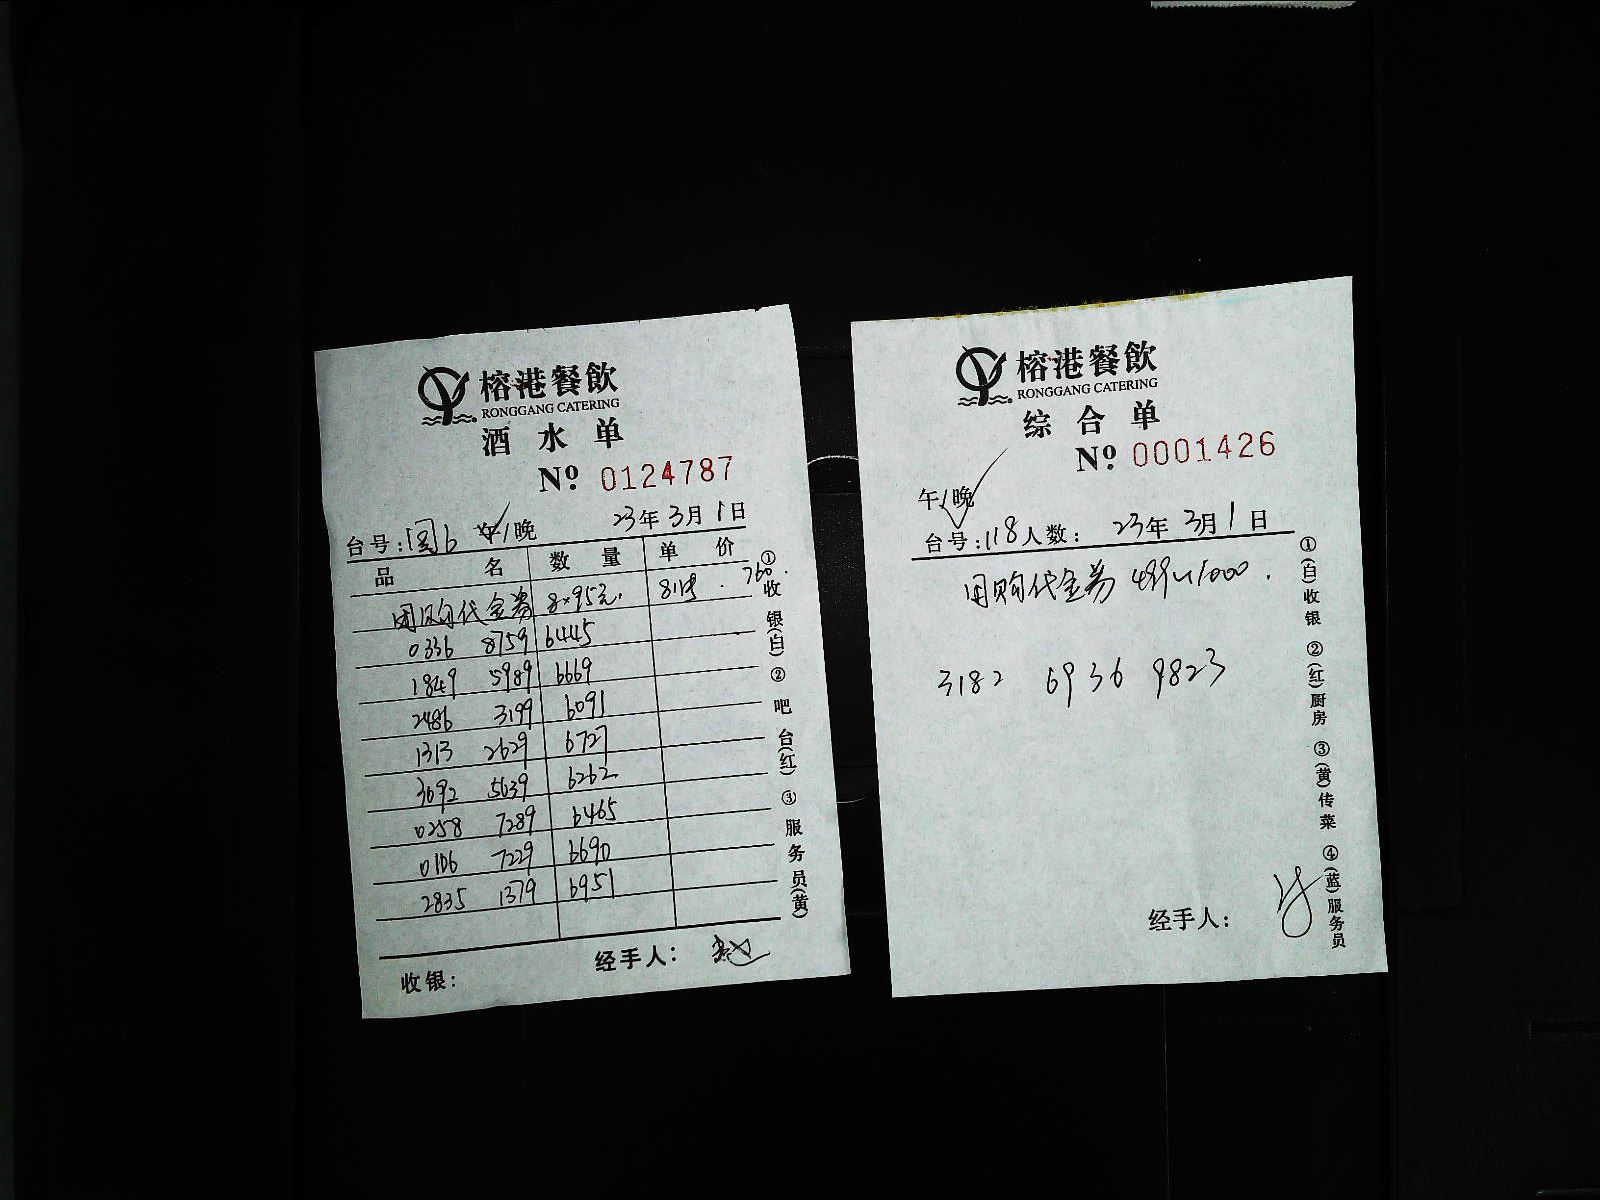 榕港餐飲
RONGGANG CATERING
酒水单
Nº 0124787
台号: 围6 午/晚 23年3月1日
品名 数量 单价
团购代金券 8×95元. 8张. 760.
0336 8759 6445
1849 5989 6669
2486 3199 6091
1313 2629 6727
3692 5639 6262
0258 7289 6465
0106 7229 6690
2835 1379 6951
收银: 经手人:
①收银(白) ②吧台(红) ③服务员(黄)
榕港餐飲
RONGGANG CATERING
综合单
Nº 0001426
午/晚
台号: 118 人数: 23年3月1日
团购代金券 499 1000.
3182 6936 9823
经手人:
①(白)收银 ②(红)厨房 ③(黄)传菜 ④(蓝)服务员